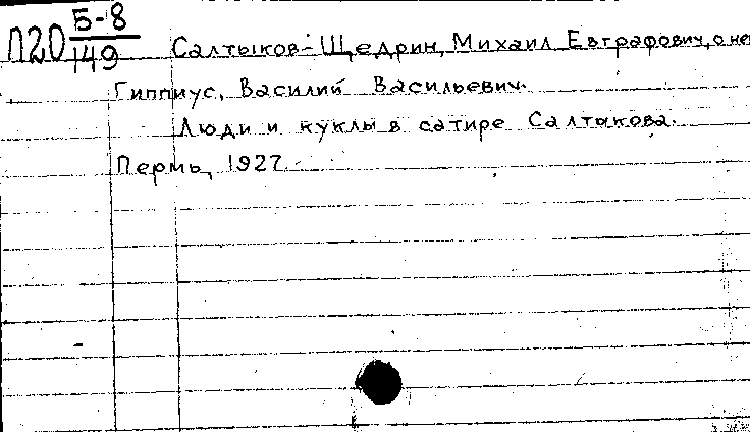 П20 Б-8/149
Салтыков-Щедрин, Михаил Евграфович, о не
Гиппиус, Василий Васильевич.
Люди и куклы в сатире Салтыкова.
Пермь, 1927